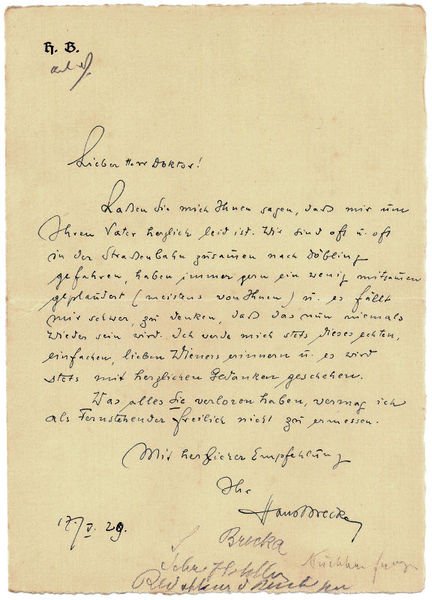 H. B.
Lieber Herr Doktor!
Laßen Sie mich Ihnen sagen, daß mir um
Ihren Vater herzlich leid ist. Wir sind oft u. oft
in der Straßenbahn zusammen nach Döbling
gefahren, haben immer gern ein wenig mitsammen
geplaudert (meistens von Ihnen) u. es fällt
mir schwer, zu denken, daß das nun niemals
wieder sein wird. Ich werde mich stets dieses echten,
einfachen, lieben Wieners erinnern u. es wird
stets mit herzlichen Gedanken geschehen.
Was alles Sie verloren haben, vermag ich
als Fernstehender freilich nicht zu ermessen.
Mit herzlicher Empfehlung
Ihr
Hans Brecka
17/V. 29.
Brecka